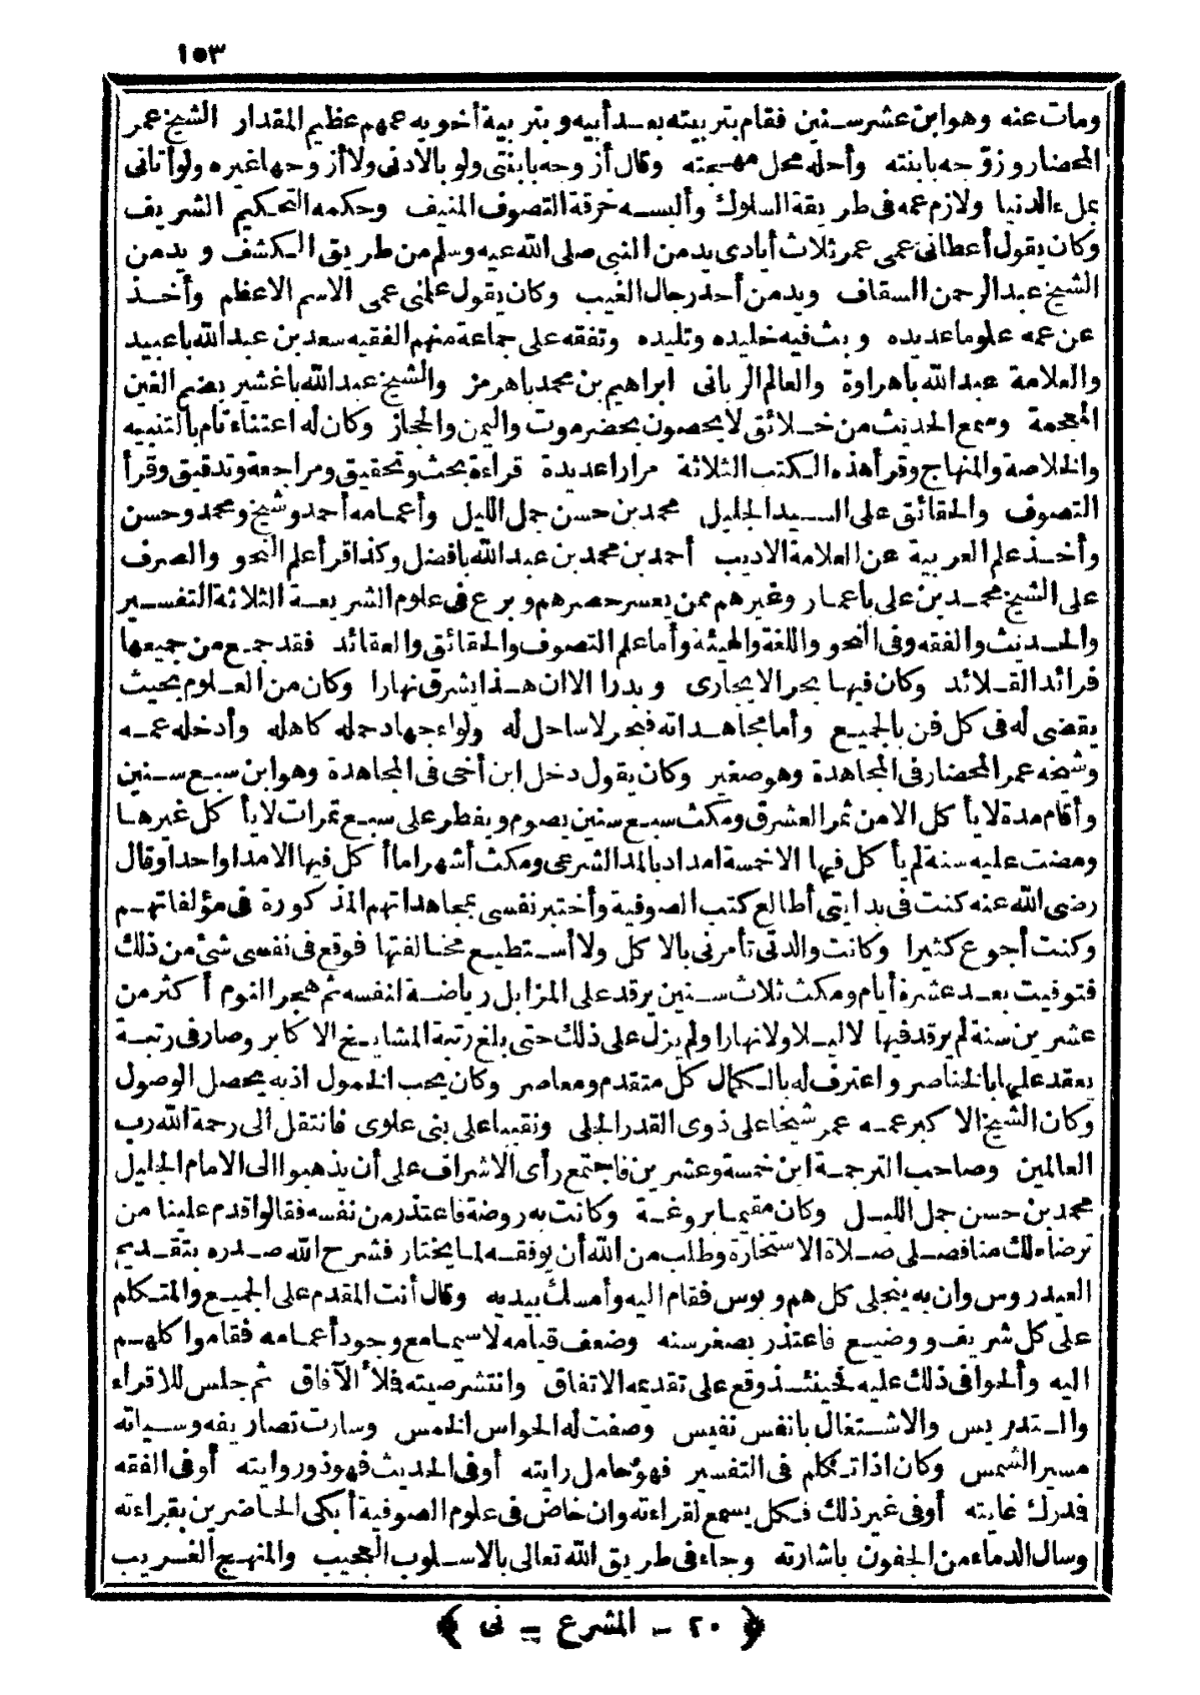 ١٥٣
ومات عنه وهو ابن عشر سنين فقام بتربيته بعد أبيه وبتربية أخويه عمهم عظيم المقدار الشيخ عمر
المحضار وزوّجه بابنته وأحله محل مهجته وقال أزوجه بابنتي ولو بالأدنى ولا أزوجها غيره ولو أتاني
بملء الدنيا ولازم عمه في طريقة السلوك وألبسه خرقة التصوف المنيف وحكمه التحكيم الشريف
وكان يقول أعطاني عمي عمر ثلاث أيادي يد من النبي صلى الله عليه وسلم من طريق الكشف ويد من
الشيخ عبد الرحمن السقاف ويد من أحد رجال الغيب وكان يقول علمني عمي الاسم الاعظم وأخذ
عن عمه علوما عديده وبث فيه خليده وتليده وتفقه على جماعة منهم الفقيه سعد بن عبد الله باعبيد
والعلامة عبد الله باهراوة والعالم الرباني ابراهيم بن محمد باهرمز والشيخ عبد الله باغشير بضم الغين
المعجمة وسمع الحديث من خلائق لا يحصون بحضرموت واليمن والحجاز وكان له اعتناء تام بالتنبيه
والخلاصة والمنهاج وقرأ هذه الكتب الثلاثة مرارا عديدة قراءة بحث وتحقيق ومراجعة وتدقيق وقرأ
التصوف والحقائق على السيد الجليل محمد بن حسن جمل الليل وأعمامه أحمد وشيخ ومحمد وحسن
وأخذ علم العربية عن العلامة الاديب أحمد بن محمد بن عبد الله بافضل وكذا قرأ علم النحو والصرف
على الشيخ محمد بن علي باعمار وغيرهم ممن يعسر حصرهم وبرع في علوم الشريعة الثلاثة التفسير
والحديث والفقه وفي النحو واللغة والهيئة وأما علم التصوف والحقائق والعقائد فقد جمع من جميعها
فرائد القلائد وكان فيها بحرا لا يجارى وبدرا الا ان هذا يشرق نهارا وكان من العلوم بحيث
يقضى له في كل فن بالجميع وأما مجاهداته فبحر لا ساحل له ولواء جهاد حمله كاهله وأدخله عمه
وشيخه عمر المحضار في المجاهدة وهو صغير وكان يقول دخل ابن أخي في المجاهدة وهو ابن سبع سنين
وأقام مدة لا يأكل الا من ثمر العشرق ومكث سبع سنين يصوم ويفطر على سبع تمرات لا يأكل غيرها
ومضت عليه سنة لم يأكل فيها الا خمسة امداد بالمد الشرعي ومكث أشهرا ما أكل فيها الا مدا واحدا وقال
رضي الله عنه كنت في بدايتي أطالع كتب الصوفية وأختبر نفسي بمجاهداتهم المذكورة في مؤلفاتهم
وكنت أجوع كثيرا وكانت والدتي تأمرني بالاكل ولا أستطيع مخالفتها فوقع في نفسي شئ من ذلك
فتوفيت بعد عشرة أيام ومكث ثلاث سنين يرقد على المزابل رياضة لنفسه ثم هجر النوم أكثر من
عشرين سنة لم يرقد فيها لا ليلا ولا نهارا ولم يزل على ذلك حتى بلغ رتبة المشايخ الاكابر وصار في رتبة
يعقد عليها بالخناصر واعترف له بالكمال كل متقدم ومعاصر وكان يحب الخمول اذ به يحصل الوصول
وكان الشيخ الاكبر عمه عمر شيخا على ذوي القدر الجلي ونقيبا على بني علوي فانتقل الى رحمة الله رب
العالمين وصاحب الترجمة ابن خمسة وعشرين فاجتمع رأى الاشراف على أن يذهبوا الى الامام الجليل
محمد بن حسن جمل الليل وكان مقيما بروغة وكانت به روضة فاعتذر من نفسه فقالوا قدم علينا من
ترضاه لك منا فصلى صلاة الاستخارة وطلب من الله أن يوفقه لما يختار فشرح الله صدره بتقديم
العيدروس وان به ينجلى كل هم وبوس فقام اليه وأمسك بيديه وقال أنت المقدم على الجميع والمتكلم
على كل شريف ووضيع فاعتذر بصغر سنه وضعف قيامه لاسيما مع وجود أعمامه فقاموا كلهم
اليه وألحوا في ذلك عليه فحينئذ وقع على تقدمه الاتفاق وانتشر صيته فملأ الآفاق ثم جلس للاقراء
والتدريس والاشتغال بانفس نفيس وصفت له الحواس الخمس وسارت تصاريفه وسياته
مسير الشمس وكان اذا تكلم في التفسير فهو حامل رايته أو في الحديث فهو ذو روايته أو في الفقه
فدرك غايته أو في غير ذلك فكل يسمع لقراءته وان خاض في علوم الصوفية أبكى الحاضرين بقراءته
وسال الدماء من الجفون باشارته وجاء في طريق الله تعالى بالاسلوب العجيب والمنهج الغريب
﴿ ٢٠ - المشرع - ني ﴾